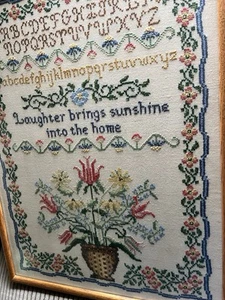 ABCDEFGHIJKL
NOPQRSTUVWXYZ
abcdefghijklmnopqrstuvwxyz
Laughter brings sunshine
into the home